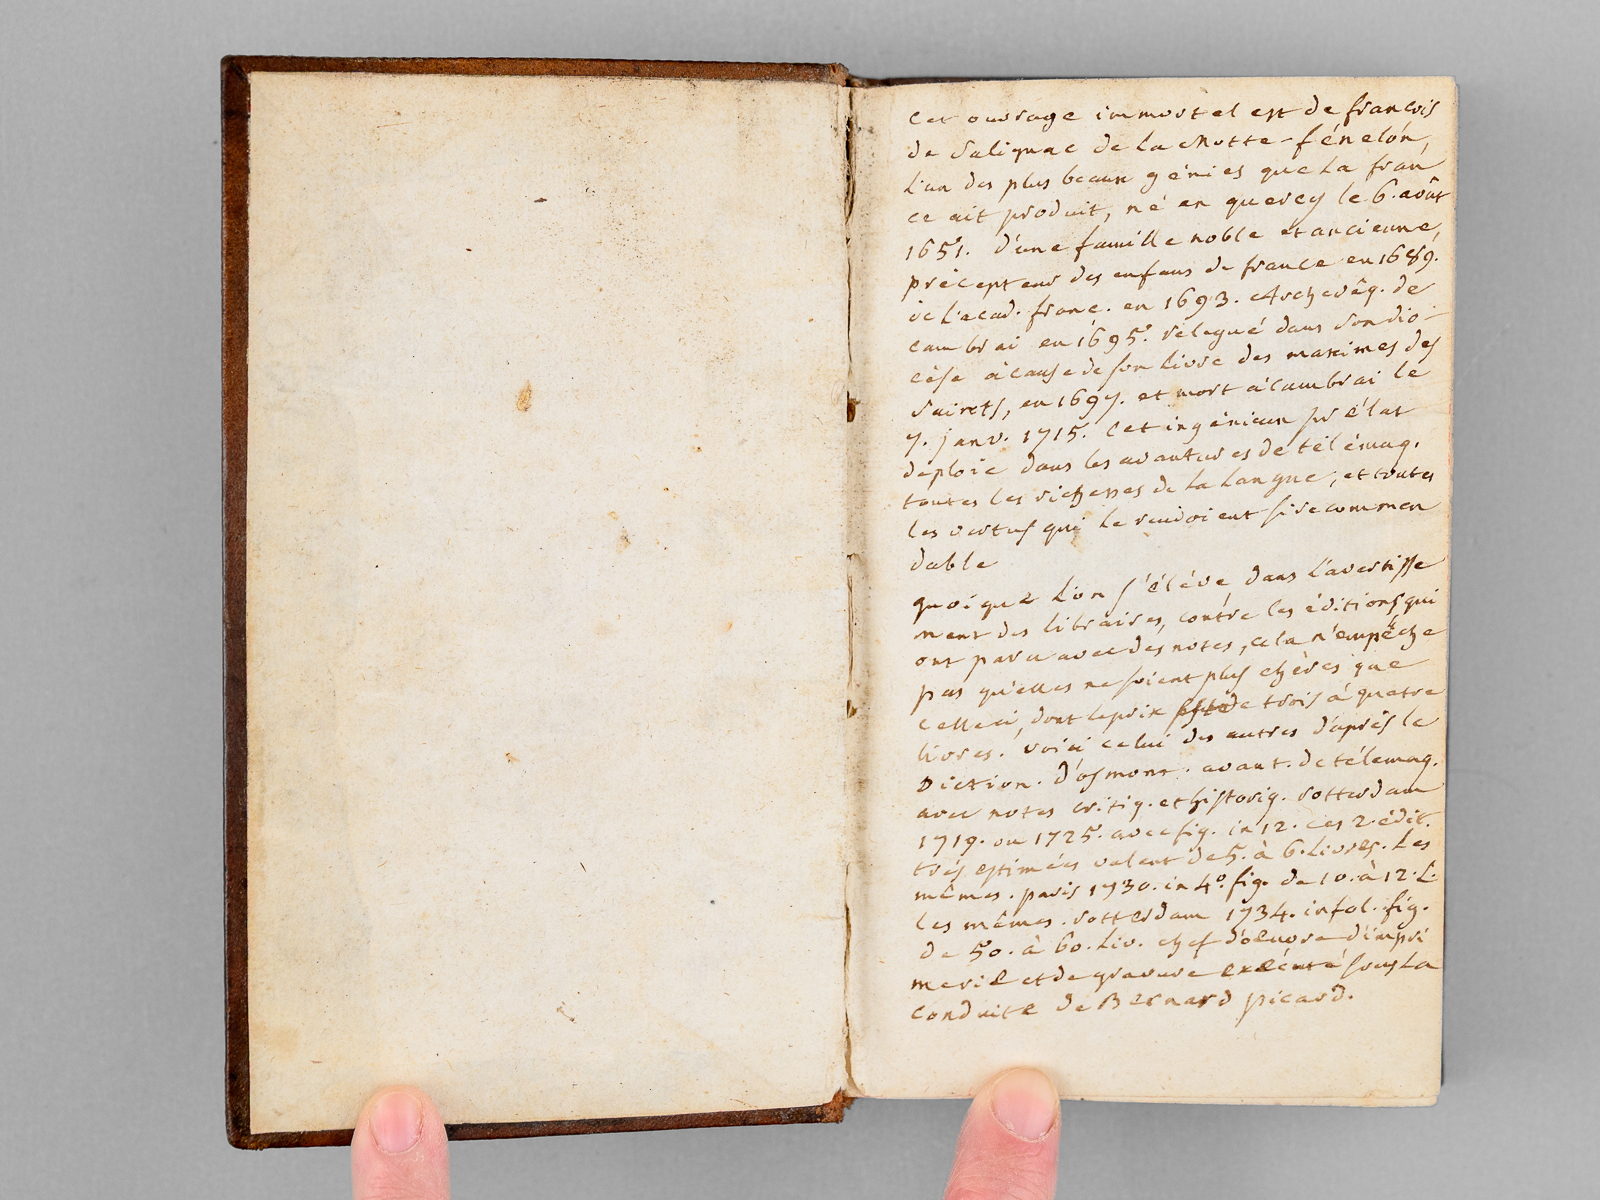 Cet ouvrage immortel est de françois
de Salignac de La Motte-fénelon,
L'un des plus beaux génies que La fran
ce ait produit, né en quercy le 6. août
1651. d'une famille noble et ancienne,
précepteur des enfans de france en 1689.
de L'acad. franc. en 1693. Archevêq. de
cambrai en 1695. relegué dans son dio-
cèse à cause de son Livre des maximes des
saints, en 1697. et mort à cambrai le
7. janv. 1715. Cet ingénieux prélat
deploie dans les avantures de télémaq.
toutes les richesses de La Langue, et toutes
les vertus qui Le rendoient si recommen
dable
quoique L'on s'élève dans L'avertisse
ment des libraires, contre les éditions qui
ont paru avec des notes, cela n'empêche
pas qu'elles ne soient plus chères que
celleci, dont le prix de trois à quatre
livres. voici celui des autres d'après le
Diction. d'osmont. avant. de télemaq.
avec notes critiq. et historiq. rotterdam
1719. ou 1725. avec fig. in 12. ces 2. édit.
très estimées valent de 5. à 6. Livres. Les
mêmes. paris 1730. in 4º. fig. de 10. à 12. L.
les mêmes. rotterdam 1734. in fol. fig.
de 50. à 60. Liv. chef d'oeuvre d'impri
merie et de gravure exécuté sous La
conduite de Bernard picard.